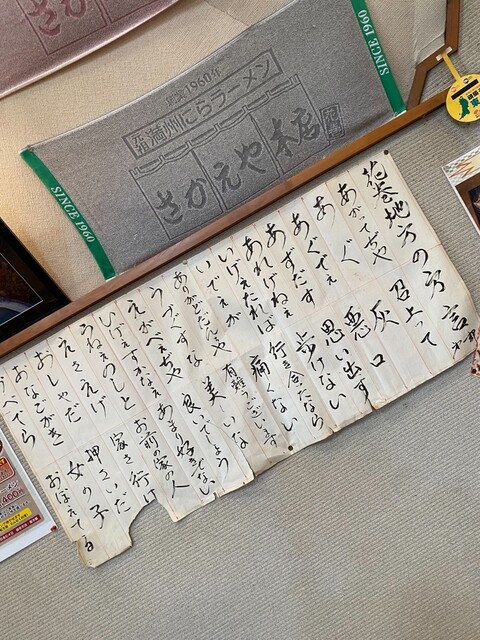 創業1960年
元祖 満州にらラーメン
さかえや本店
SINCE 1960
SINCE 1960
花巻地方の方言
あがってぢゃ 召上って
あぐ 灰
あぐでぇ 悪口
あずだす 思い出す
あれげねぇ 歩けない
いげぇたれば 行き会たなら
いでぇが 痛くない
ありがどだんちゃ 有難うございます
うづぐすな 美しいな
えがべぢゃ 良いでしょう
いげぇすかねぇ あまり好きでない
うねぇのしと お前の家の人
えさえげ 家さ行け
おしゃだ 押さいだ
おなごわき 女の子
おべでら おぼえてる
400円